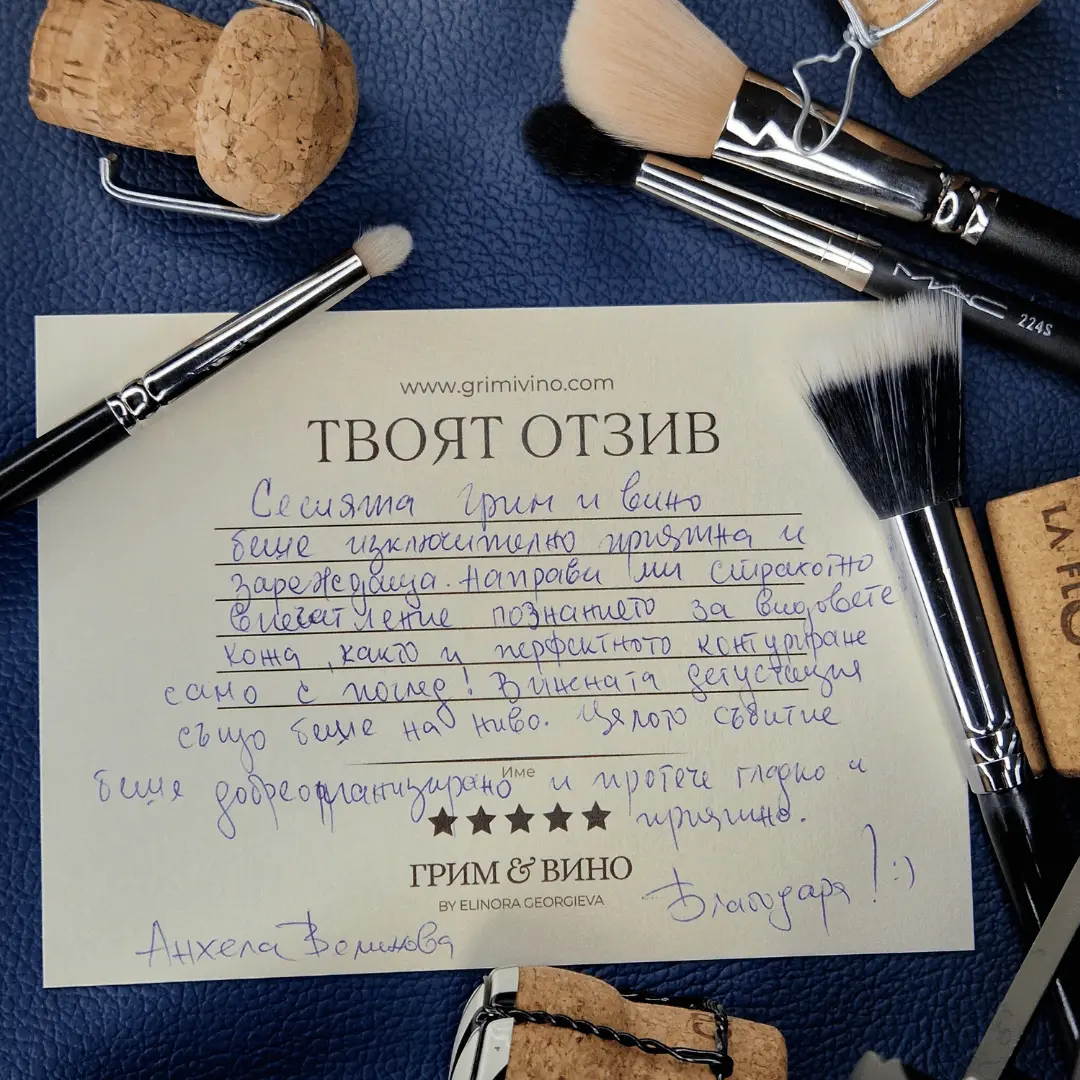 MAC 224S
LA FIO
www.grimivino.com
ТВОЯТ ОТЗИВ
Сесията грим и вино
беше изключително приятна и
зареждаща. Направи ми страхотно
впечатление познанието за видовете
кожа, както и перфектното контуриране
само с поглед! Винената дегустация
също беше на ниво. Цялото събитие
Име
беше добреорганизирано и протече гладко и
приятно.
ГРИМ & ВИНО
BY ELINORA GEORGIEVA
Благодаря! :)
Анхела